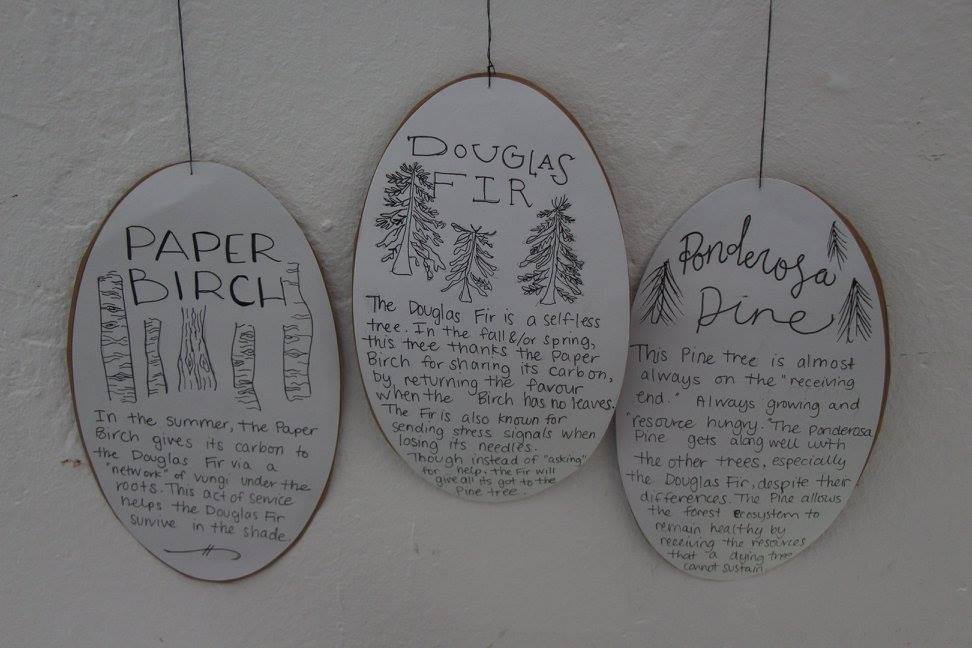 PAPER
BIRCH
In the summer, the Paper
Birch gives its carbon to
the Douglas Fir via a
"network" of vungi under the
roots. This act of service
helps the Douglas Fir
survive in the shade.
DOUGLAS
FIR
The Douglas Fir is a self-less
tree. In the fall &/or spring,
this tree thanks the Paper
Birch for sharing its carbon,
by returning the favour
when the Birch has no leaves.
The Fir is also known for
sending stress signals when
losing its needles.
Though instead of "asking"
for help, the Fir will
give all its got to the
Pine tree.
Ponderosa
Pine
This Pine tree is almost
always on the "receiving
end." Always growing and
"resource hungry." The Ponderosa
Pine gets along well with
the other trees, especially
the Douglas Fir, despite their
differences. The Pine allows
the forest ecosystem to
remain healthy by
receiving the resources
that a dying tree
cannot sustain.